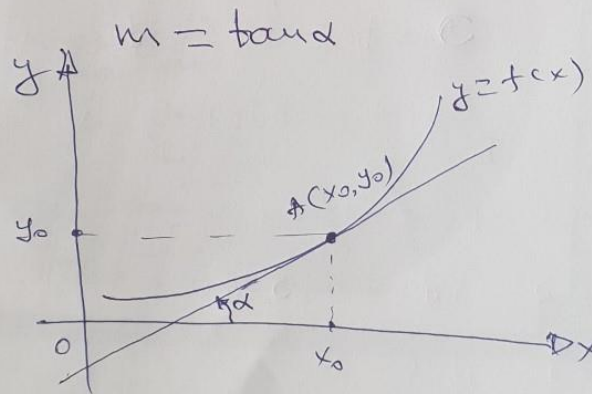 m = tanα
y
y=f(x)
A(x₀,y₀)
y₀
α
0
x₀
x